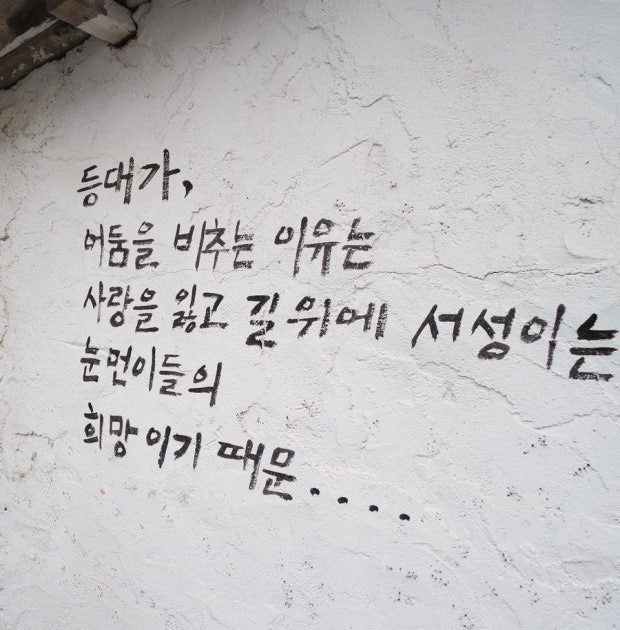 등대가,
어둠을 비추는 이유는
사랑을 잃고 길 위에 서성이는
눈먼이들의
희망이기 때문....